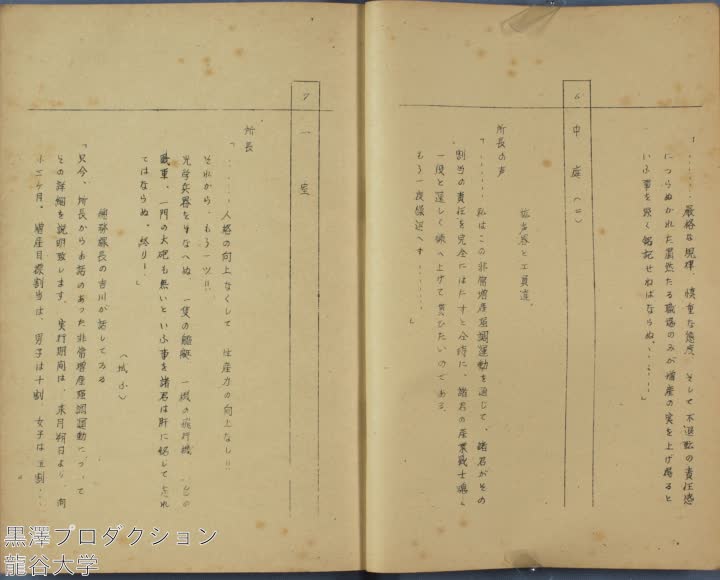 「‥‥‥厳格な規律、慎重な態度、そして不退転の責任感
につらぬかれた粛然たる職場のみが増産の実を上げ得ると
いふ事を深く銘記せねばならぬ‥‥‥」
6 中庭(二)
拡声器と工員達
所長の声
「‥‥‥私はこの非常増産強調運動を通じて、諸君がその
割当の責任を完全にはたすと同時に、諸君の産業戦士魂を
一段と逞しく鍛へ上げて貰ひたいのである
もう一度繰返へす‥‥‥
」
7 一室
所長
「‥‥‥人格の向上なくして 生産力の向上なし!!
それから、もう一ツ!!
光学兵器を伴なへぬ、一隻の艦艇 一機の飛行機
戦車、一門の大砲も無いといふ事を諸君は肝に銘して忘れ
てはならぬ、終り!」
(城山)
総務課長の吉川が話してゐる
「只今、所長からお話のあった非常増産強調運動について
その詳細を説明致します、実行期間は、来月朔日より 向
ふ三ヶ月、増産目標割当は、男子は十割 女子は五割‥‥
黒澤プロダクション
龍谷大学